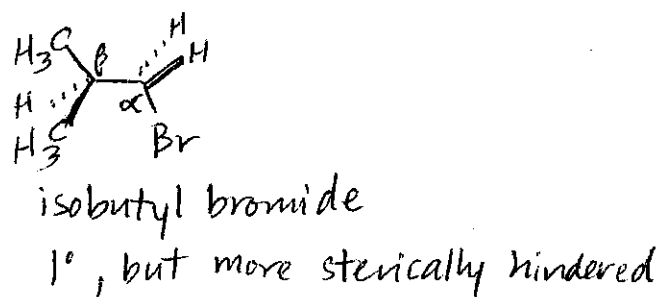 H
H₃C β H
H α
H₃C Br
isobutyl bromide
1°, but more sterically hindered